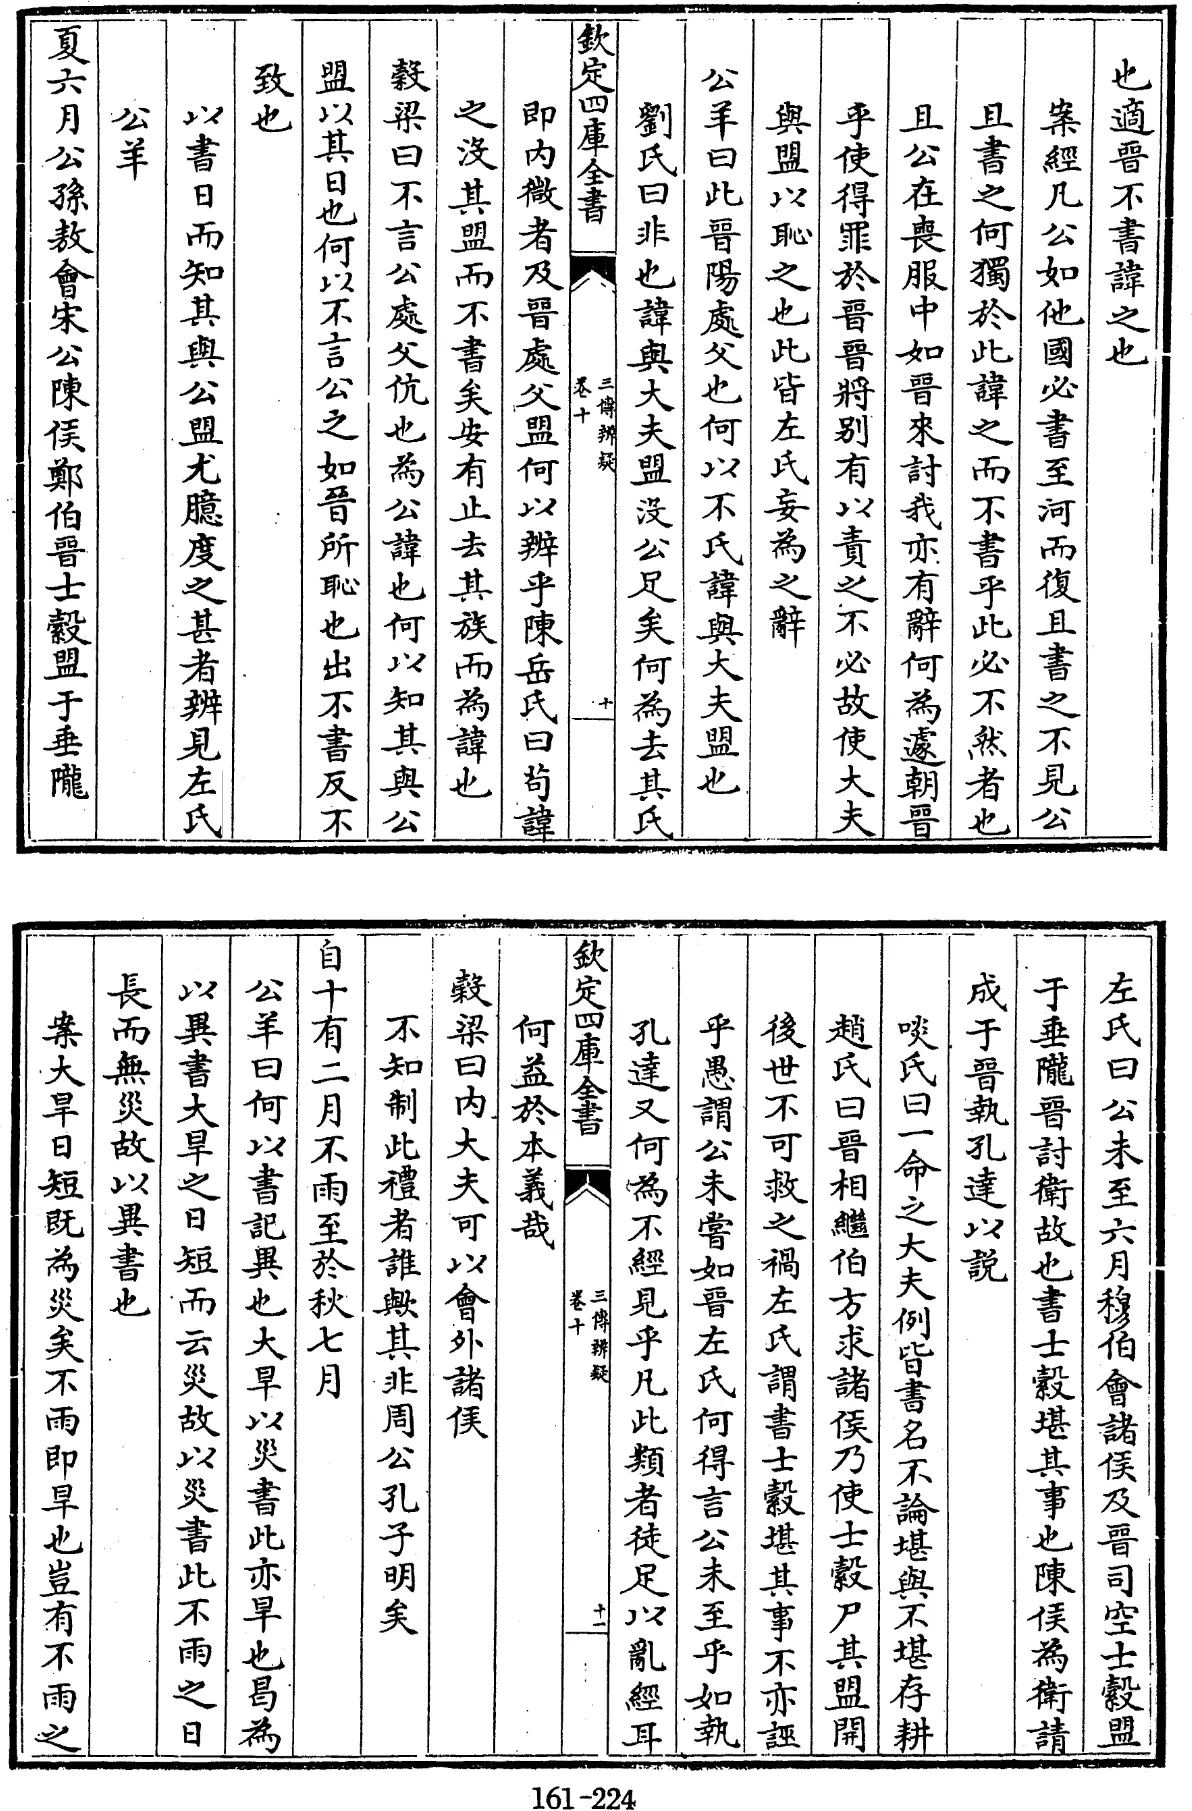 也適晉不書諱之也
案經凡公如他國必書至河而復且書之不見公
且書之何獨於此諱之而不書乎此必不然者也
且公在喪服中如晉來討我亦有辭何為遽朝晉
乎使得罪於晉晉將别有以責之不必故使大夫
與盟以恥之也此皆左氏妄為之辭
公羊曰此晉陽處父也何以不氏諱與大夫盟也
劉氏曰非也諱與大夫盟没公足矣何為去其氏
欽定四庫全書
三傳辨疑
卷十
十
即内微者及晉處父盟何以辨乎陳岳氏曰茍諱
之没其盟而不書矣安有止去其族而為諱也
穀梁曰不言公處父伉也為公諱也何以知其與公
盟以其日也何以不言公之如晉所恥也出不書反不
致也
以書日而知其與公盟尤臆度之甚者辨見左氏
公羊
夏六月公孫敖會宋公陳侯鄭伯晉士縠盟于垂隴
左氏曰公未至六月穆伯會諸侯及晉司空士縠盟
于垂隴晉討衛故也書士縠堪其事也陳侯為衛請
成于晉執孔達以説
啖氏曰一命之大夫例皆書名不論堪與不堪存耕
趙氏曰晉相繼伯方求諸侯乃使士縠尸其盟開
後世不可救之禍左氏謂書士縠堪其事不亦誣
乎愚謂公未嘗如晉左氏何得言公未至乎如執
孔達又何為不經見乎凡此類者徒足以亂經耳
欽定四庫全書
三傳辨疑
卷十
十一
何益於本義哉
穀梁曰内大夫可以會外諸侯
不知制此禮者誰歟其非周公孔子明矣
自十有二月不雨至於秋七月
公羊曰何以書記異也大旱以災書此亦旱也曷為
以異書大旱之日短而云災故以災書此不雨之日
長而無災故以異書也
案大旱日短既為災矣不雨即旱也豈有不雨之
161-224